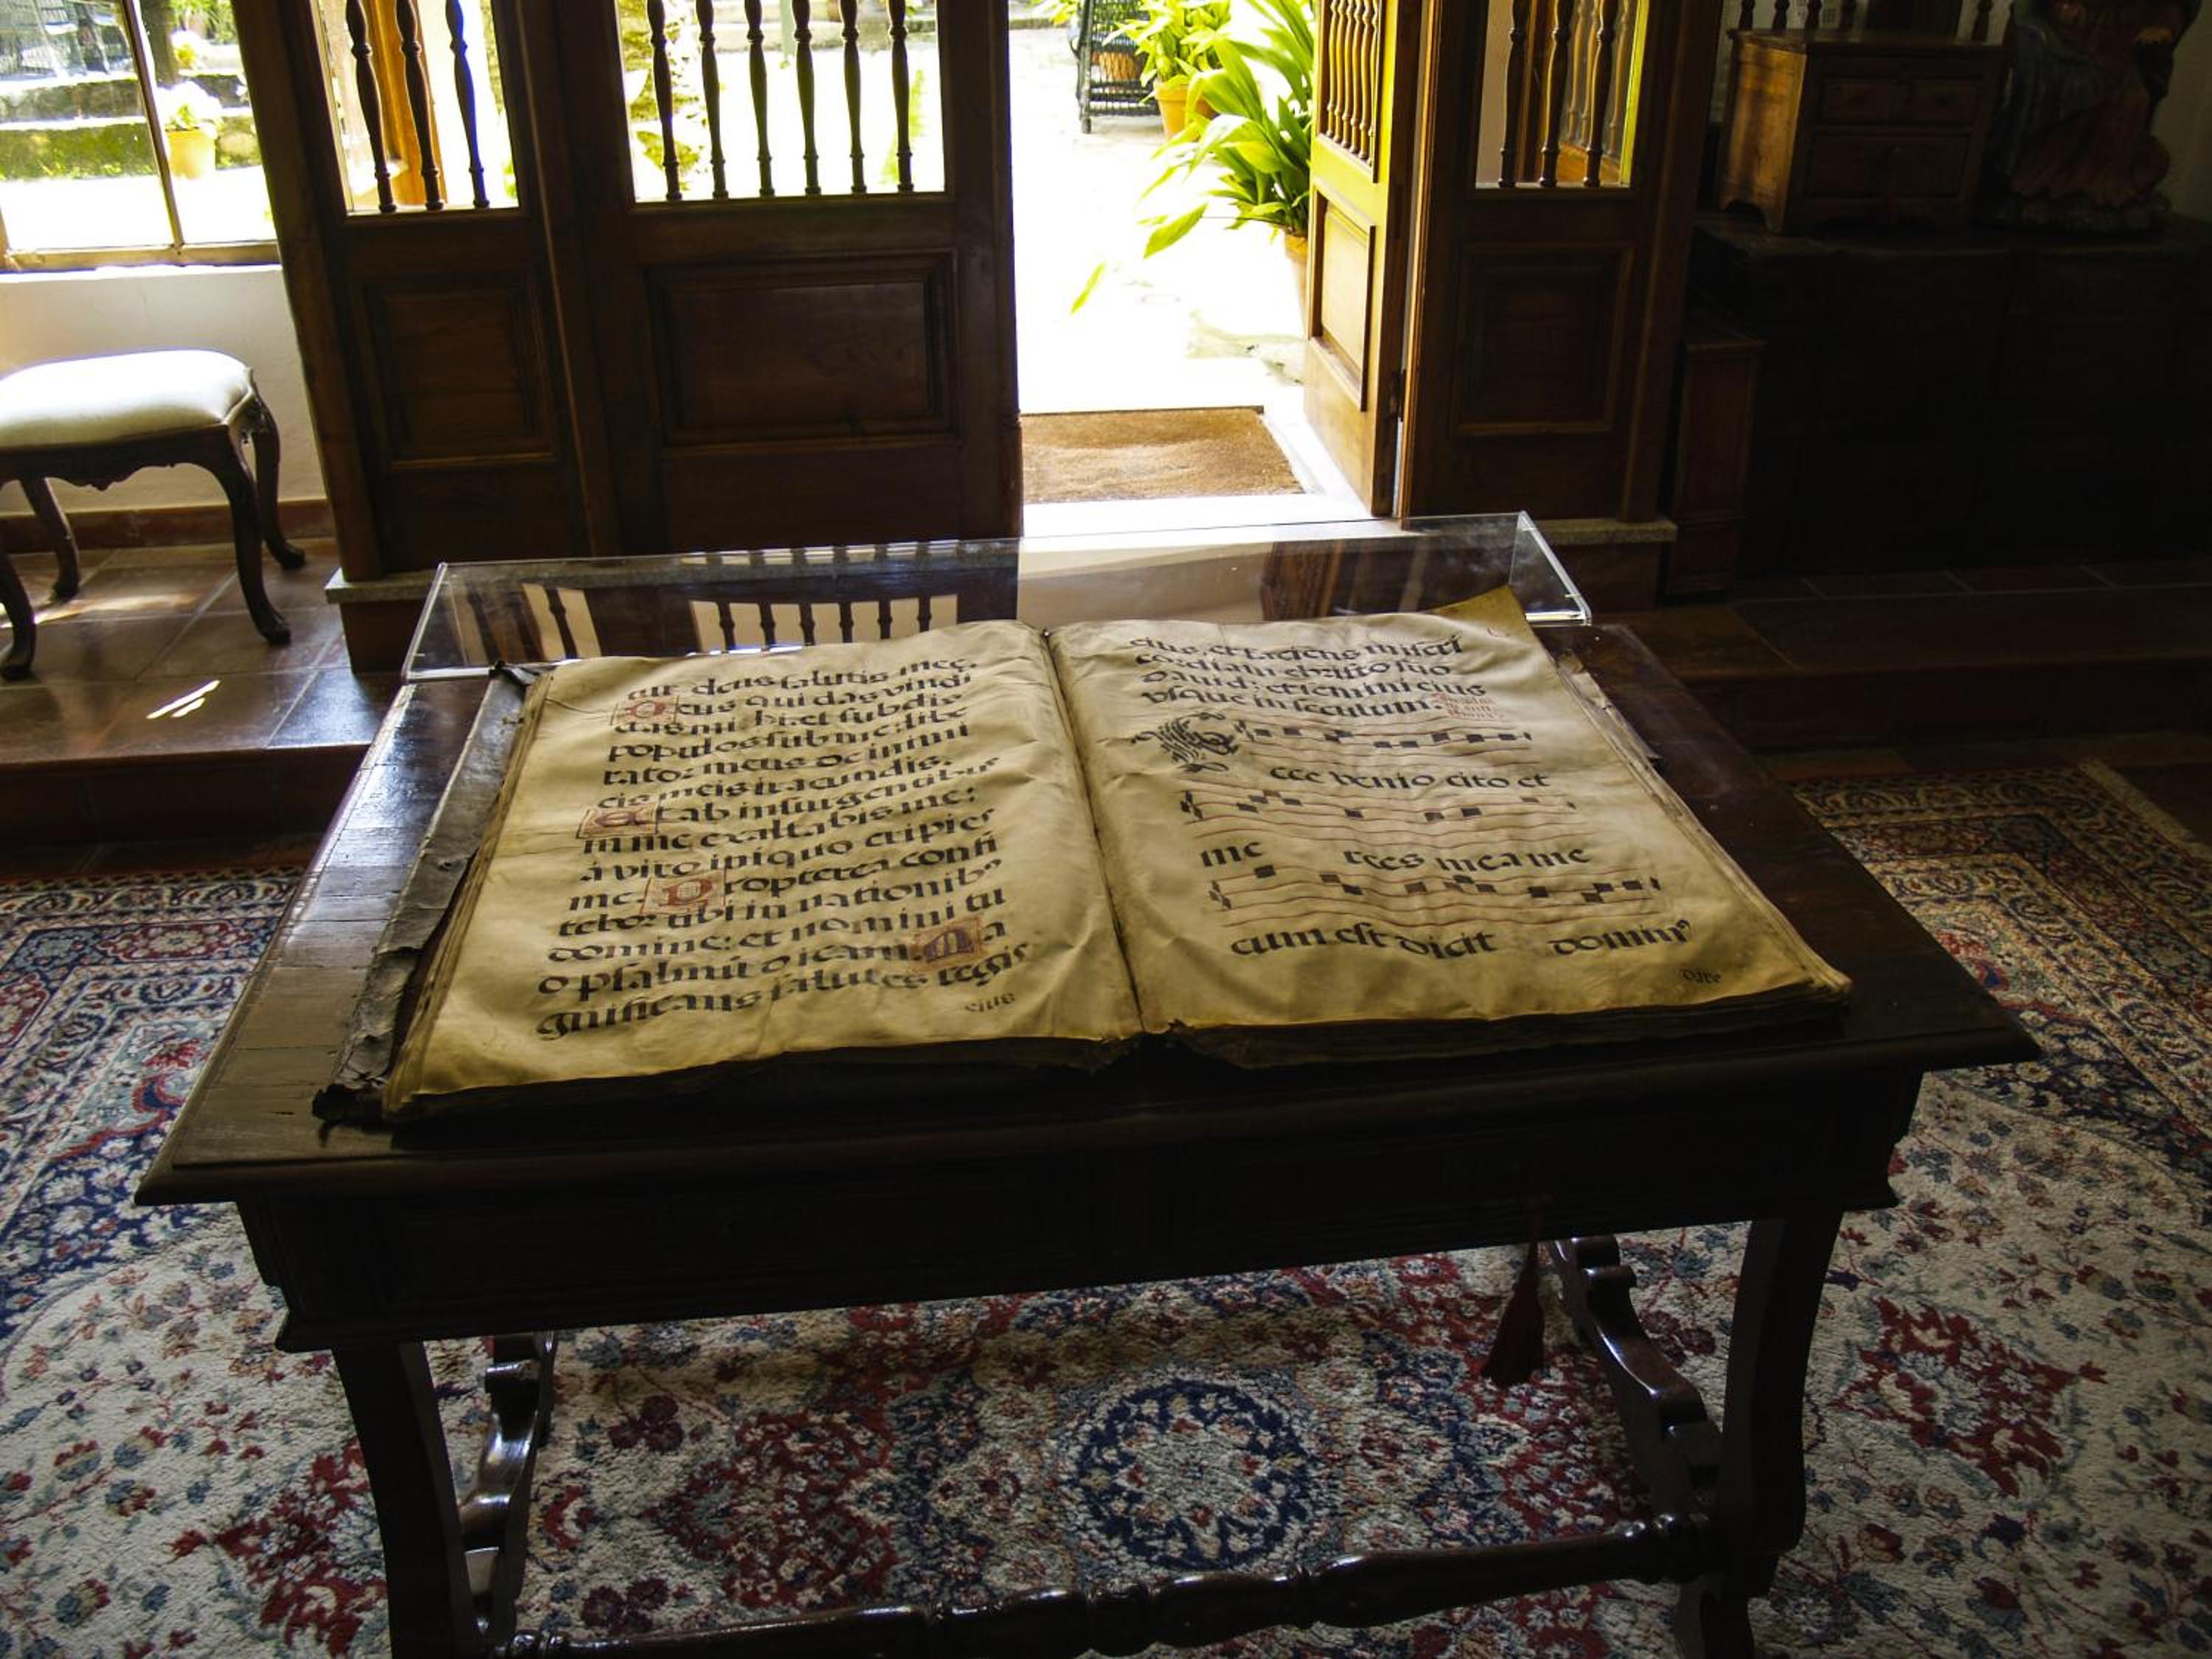 tur deus salutis mee.
Deus qui das vindi
ctas mi hi: et subdis
populos sub me: libe
rator meus de inimi
cis meis iracundis.
Et ab insurgentibus
in me exaltabis me:
a viro iniquo eripies
me. Propterea confi
tebor tibi in nationib⁹
domine: et nomini tu
o psalmū dicam. Ma
gnificans salutes regis
eius
eius, et faciens miseri
cordiam christo suo
dauid: et semini eius
vsque in seculum.
Ecce venio cito et
me rces mea me
cum est dicit domin⁹
dare